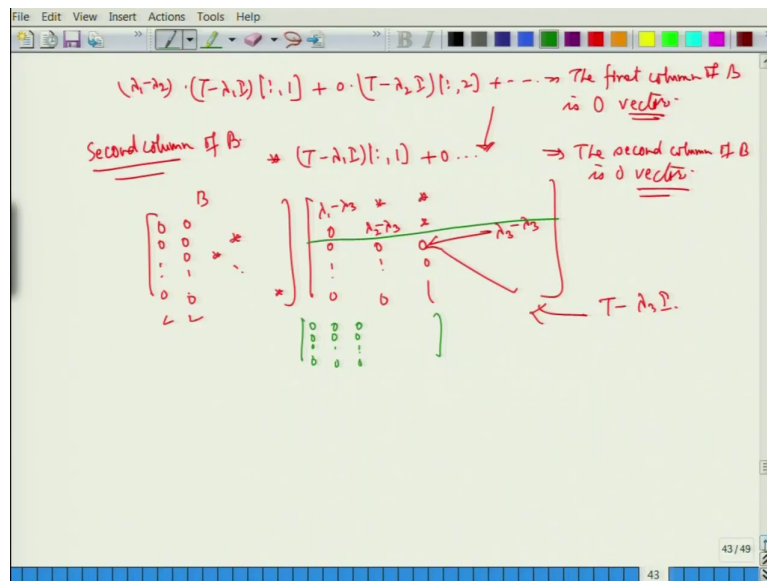 File Edit View Insert Actions Tools Help
(λ₁-λ₂)·(T-λ₁I)[:,1] + 0·(T-λ₂I)[:,2] + --- ⇒ The first column of B
is 0 vector.
Second column of B * (T-λ₁I)[:,1] + 0... ⇒ The second column of B
is 0 vector.
B
0 0 λ₁-λ₃ * *
0 0 * 0 λ₂-λ₃ *
0 * * 0 0 0 λ₃-λ₃
⋮ ⋮ ⋱ ⋮ ⋮ 0
0 0 * 0 0 |
T-λ₃I.
0 0 0
0 0 0
⋮ ⋮ ⋮
0 0 0
43/49
43